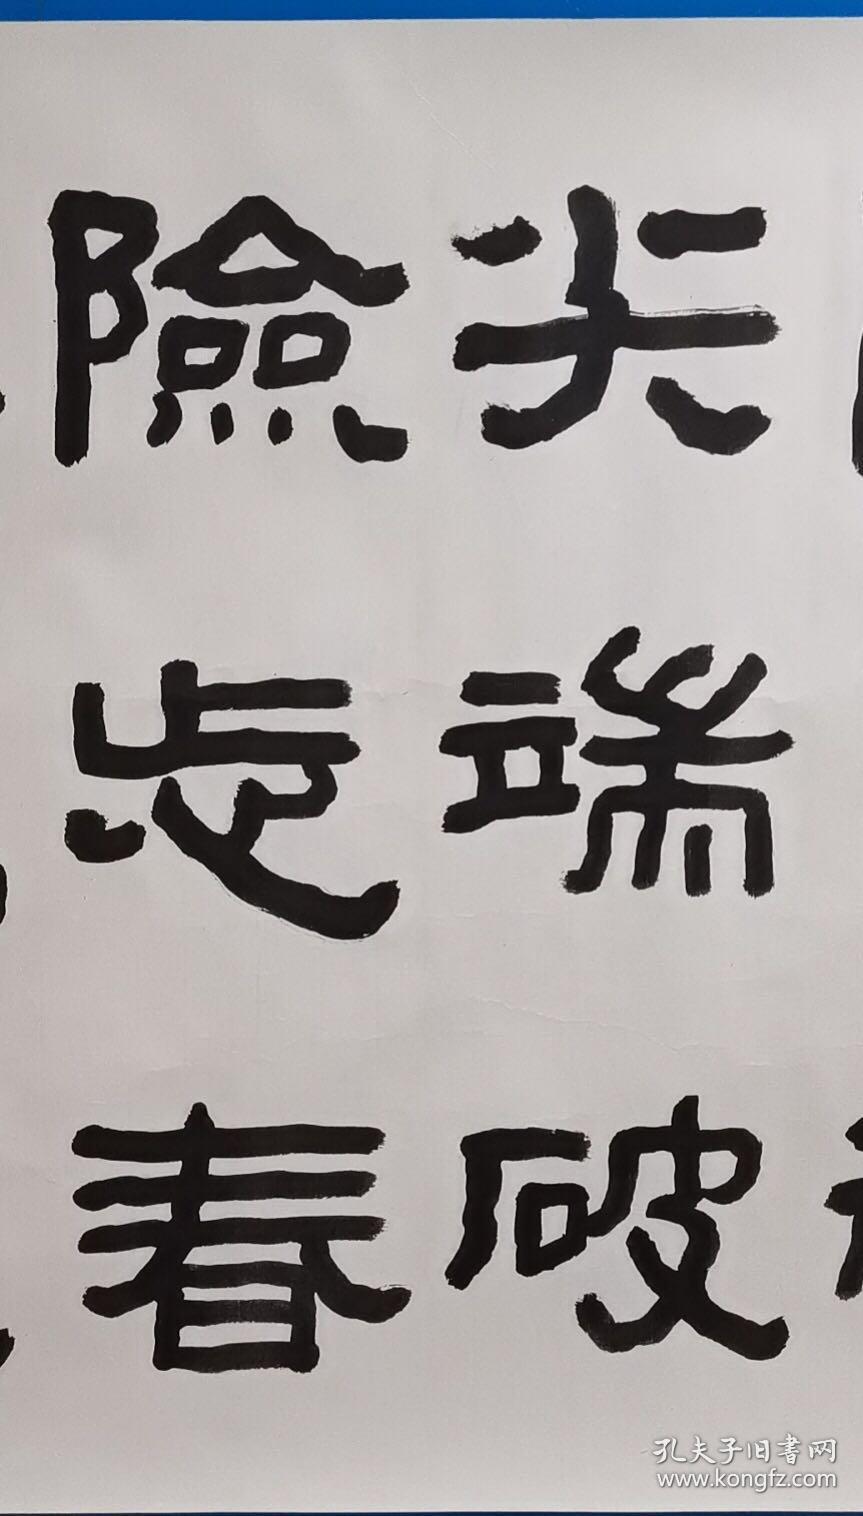 尖端破
險忘春
孔夫子旧書网
www.kongfz.com